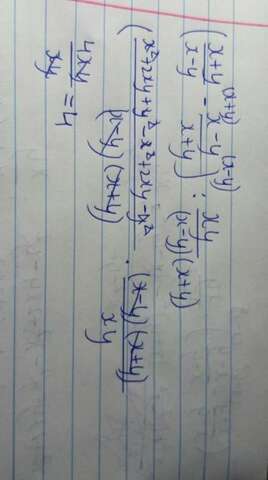 (x+y/x-y (x+y) - x-y/x+y (x-y)) : xy/(x-y)(x+y)
(x²+2xy+y²-x²+2xy-y²/(x-y)(x+y)) · (x-y)(x+y)/xy
4xy/xy = 4